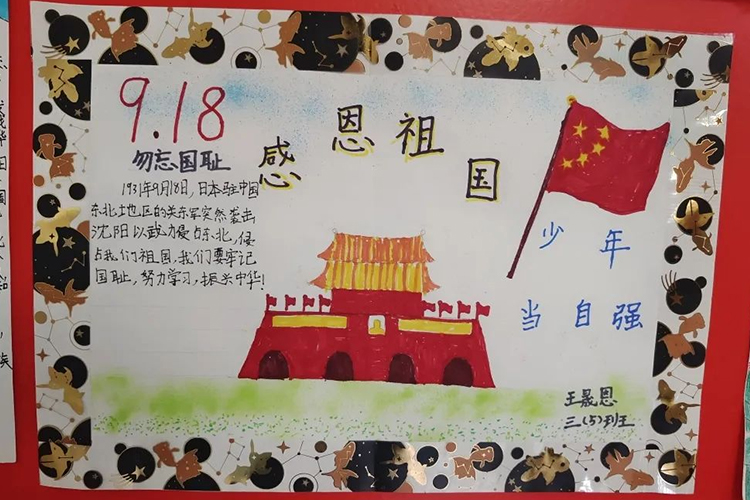 9.18
勿忘国耻
感恩祖国
1931年9月18日,日本驻中国
东北地区的关东军突然袭击
沈阳以武力侵占东北,侵
占我们祖国.我们要牢记
国耻,努力学习,振兴中华!
少年
当自强
王晟恩
三(5)班